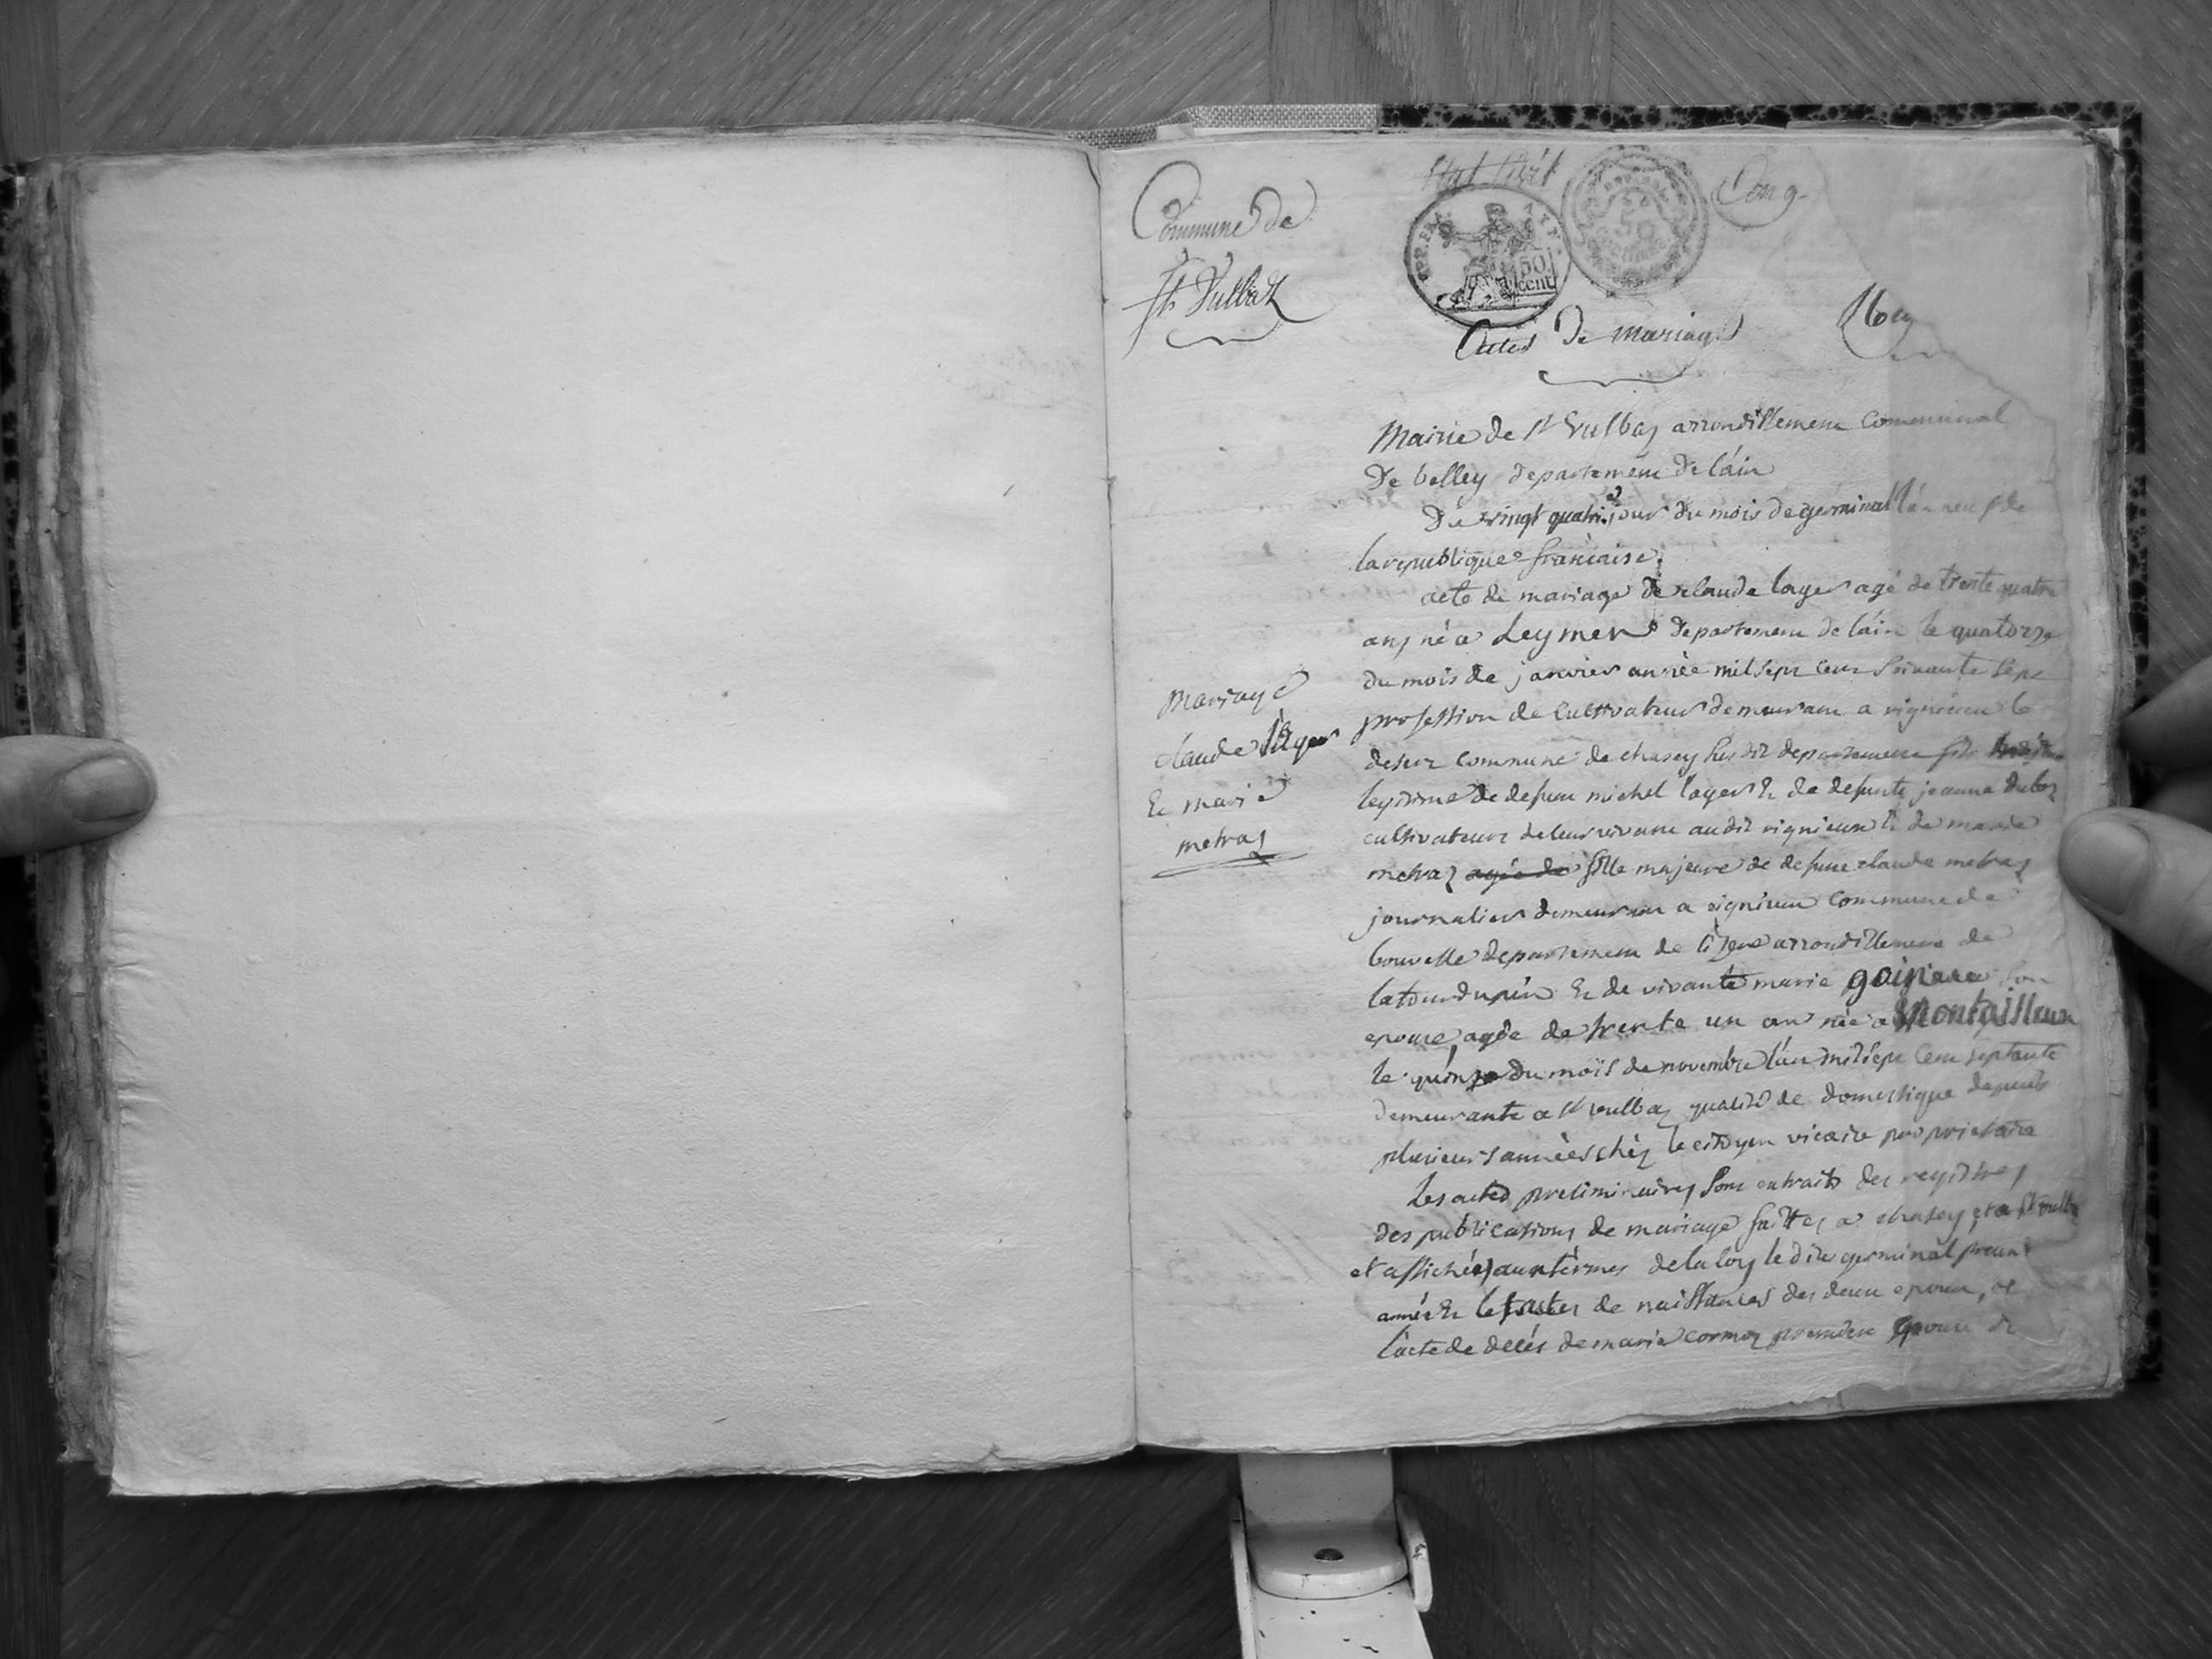 Etat Civil
Commune de
St Vulbaz
REP. FRA.
50
cent
50
Actes De mariage
Mairie de st Vulbaz arrondissement Communal
De belley departement de l'ain
Du vingt quatre jour du mois de germinal l'an neuf de
la republique francaise.
acte de mariage de claude lager agé de trente quatre
ans né a Leymen departement de l'ain le quatorze
du mois de janvier année mil sept cent soixante sept
profession de Cultivateur demeurant a rignieux le
desert commune de chasey sus dit departement fils
legitime de defunt michel lager & de defunte jeanne duboz
cultivateurs de leur vivant audit rignieux & de marie
metraz agée de fille majeure de defunt claude metraz
journalier demeurant a vignieu Commune de
bouvesse departement de l'izere arrondissement de
latourdupin & de vivante marie son
epouse, agée de trente un an née a Montailleux
le quinze du mois de novembre l'an mil sept cent septante
demeurante a st vulbaz qualité de domestique depuis
plusieurs années chéz le citoyen vicaire proprietaire
Les actes preliminaires sont extraits des registres
des publications de mariage faittes a chasey, et a st vulba
et affichées aux térmes de la loy le dix germinal presente
année & les actes de naissances des deux epoux, et
l'acte de décés de marie cormoz premiere epouse de
Mariage
claude lager
& marie
metraz